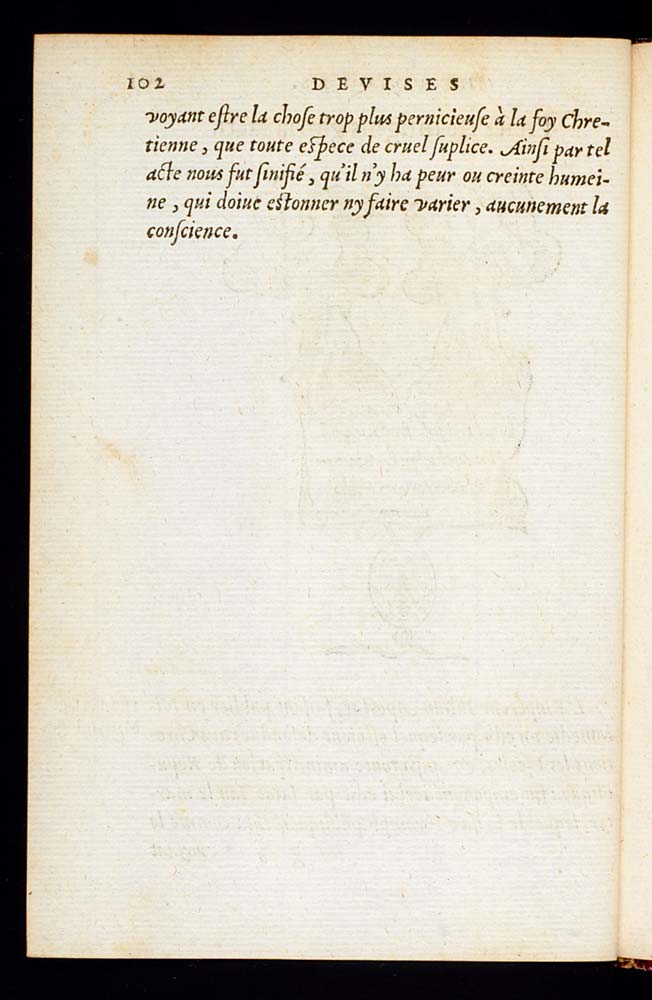 102 DEVISES
voyant estre la chose trop plus pernicieuse à la foy Chre-
tienne, que toute espece de cruel suplice. Ainsi par tel
acte nous fut sinifié, qu'il n'y ha peur ou creinte humei-
ne, qui doiue estonner ny faire varier, aucunement la
conscience.